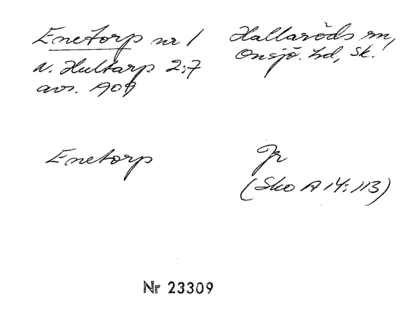 Enetorp nr 1
N. Hultarp 2:7
avs. 1909
Hallaröds sn,
Onsjö hd, Sk.
Enetorp
Jr
(Sko A 14:113)
Nr 23309